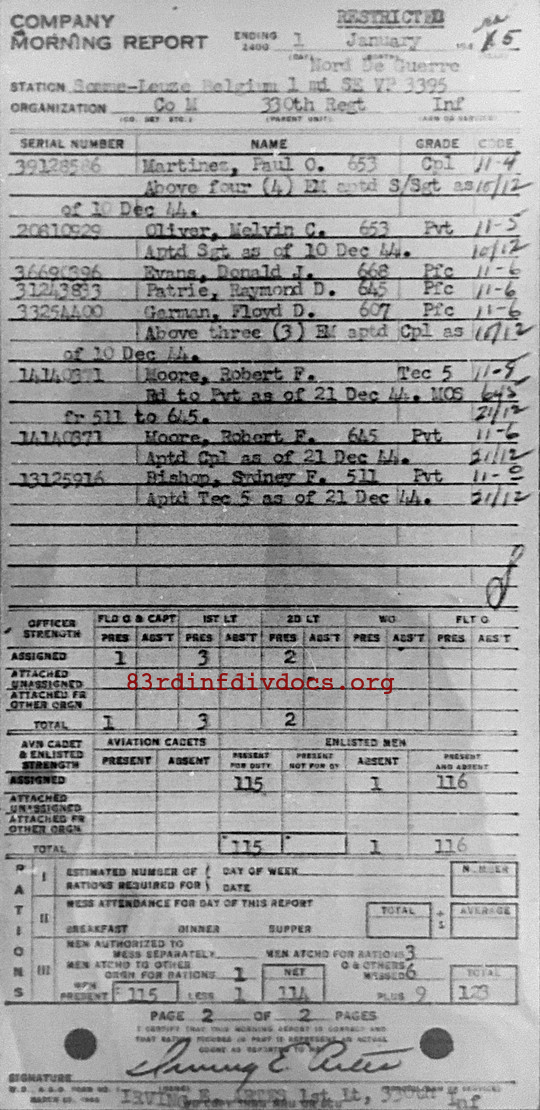 COMPANY RESTRICTED
MORNING REPORT ENDING 2400 1 January 5
Nord De Guerre
STATION Somme-Leuze Belgium 1 mi SE VP 3395
ORGANIZATION Co M 330th Regt Inf
(PARENT UNIT) (ARM OR SERVICE)
SERIAL NUMBER NAME GRADE CODE
Martinez, Paul O. 653 Cpl 11-4
Above four (4) EM aptd S/Sgt as 10/12
of 10 Dec 44.
20810929 Oliver, Melvin C. 653 Pvt 11-5
Aptd Sgt as of 10 Dec 44. 10/12
36690396 Evans, Donald J. 668 Pfc 11-6
31243833 Patrie, Raymond D. 645 Pfc 11-6
33254400 German, Floyd D. 607 Pfc 11-6
Above three (3) EM aptd Cpl as 10/12
of 10 Dec 44.
14140371 Moore, Robert F. Tec 5 11-5
Rd to Pvt as of 21 Dec 44. MOS 645
fr 511 to 645. 21/12
14140371 Moore, Robert F. 645 Pvt 11-6
Aptd Cpl as of 21 Dec 44. 21/12
13125916 Bishop, Sydney F. 511 Pvt
Aptd Tec 5 as of 21 Dec 44. 21/12
OFFICER STRENGTH FLD O & CAPT 1ST LT 2D LT WO FLT O
PRES ABS'T PRES ABS'T PRES ABS'T PRES ABS'T PRES ABS'T
ASSIGNED 1 3 2
ATTACHED UNASSIGNED
83rdinfdivdocs.org
ATTACHED FR OTHER ORGN
TOTAL 1 3 2
AVN CADET & ENLISTED STRENGTH AVIATION CADETS ENLISTED MEN
PRESENT ABSENT PRESENT FOR DUTY PRESENT NOT FOR DY ABSENT PRESENT AND ABSENT
ASSIGNED 115 1 116
ATTACHED UNASSIGNED
ATTACHED FR OTHER ORGN
TOTAL 115 1 116
RATIONS
I ESTIMATED NUMBER OF RATIONS REQUIRED FOR DAY OF WEEK DATE NUMBER
II MESS ATTENDANCE FOR DAY OF THIS REPORT TOTAL ÷ 3 AVERAGE
BREAKFAST DINNER SUPPER
III MEN AUTHORIZED TO MESS SEPARATELY MEN ATCHD FOR RATIONS 3
MEN ATCHD TO OTHER ORGN FOR RATIONS 1 NET O & OTHERS MESSED 6 TOTAL
MEN PRESENT 115 LESS 1 114 PLUS 9 123
PAGE 2 OF 2 PAGES
I CERTIFY THAT THIS MORNING REPORT IS CORRECT AND
THAT RATION FIGURES IN PART III REPRESENT AN ACTUAL
COUNT AS REPORTED TO ME
SIGNATURE
1st Lt, 330th Inf